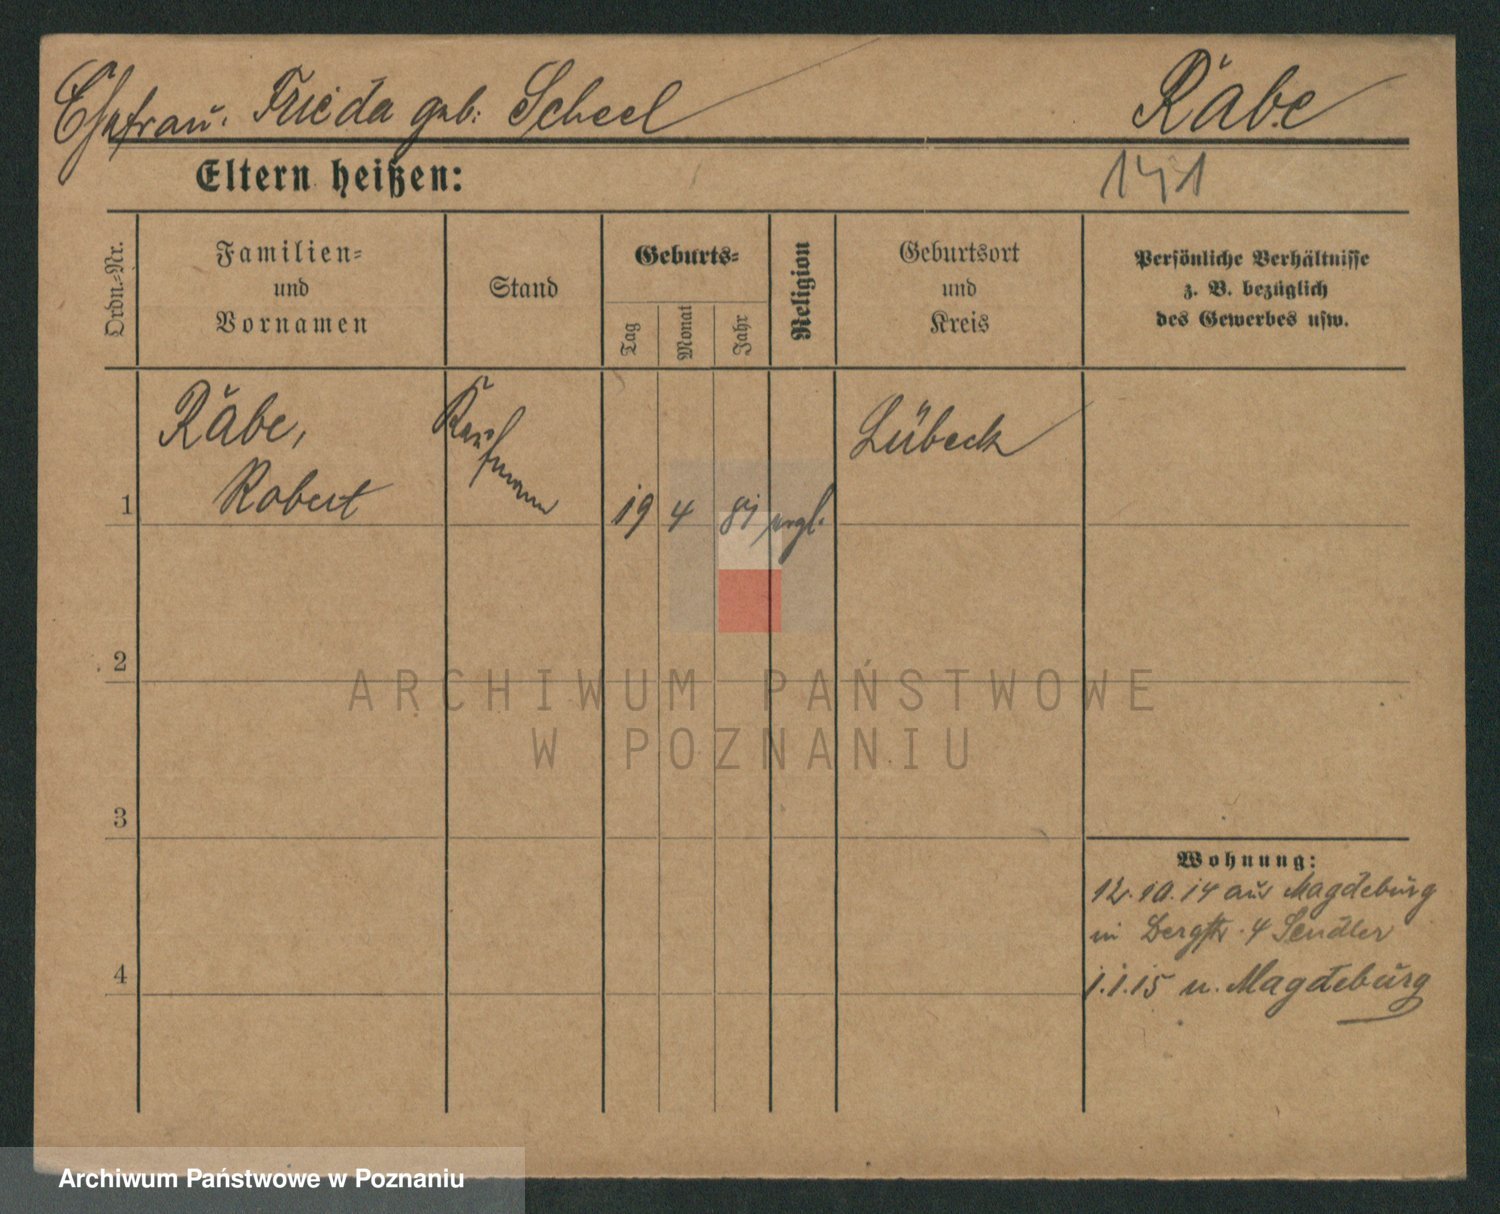 Ehefrau. Frieda geb: Scheel Räbe
Eltern heißen: 141
Ordn.-Nr.
Familien=
und
Vornamen
Stand
Geburts=
Tag
Monat
Jahr
Religion
Geburtsort
und
Kreis
Persönliche Verhältnisse
z. B. bezüglich
des Gewerbes usw.
1
Räbe,
Robert
Kauf
mann
19 4 81 evgl.
Lübeck
2
ARCHIWUM PAŃSTWOWE
W POZNANIU
3
Wohnung:
12.10.14 aus Magdeburg
in Bergstr. 4 Sendler
4
1.1.15 n. Magdeburg
Archiwum Państwowe w Poznaniu